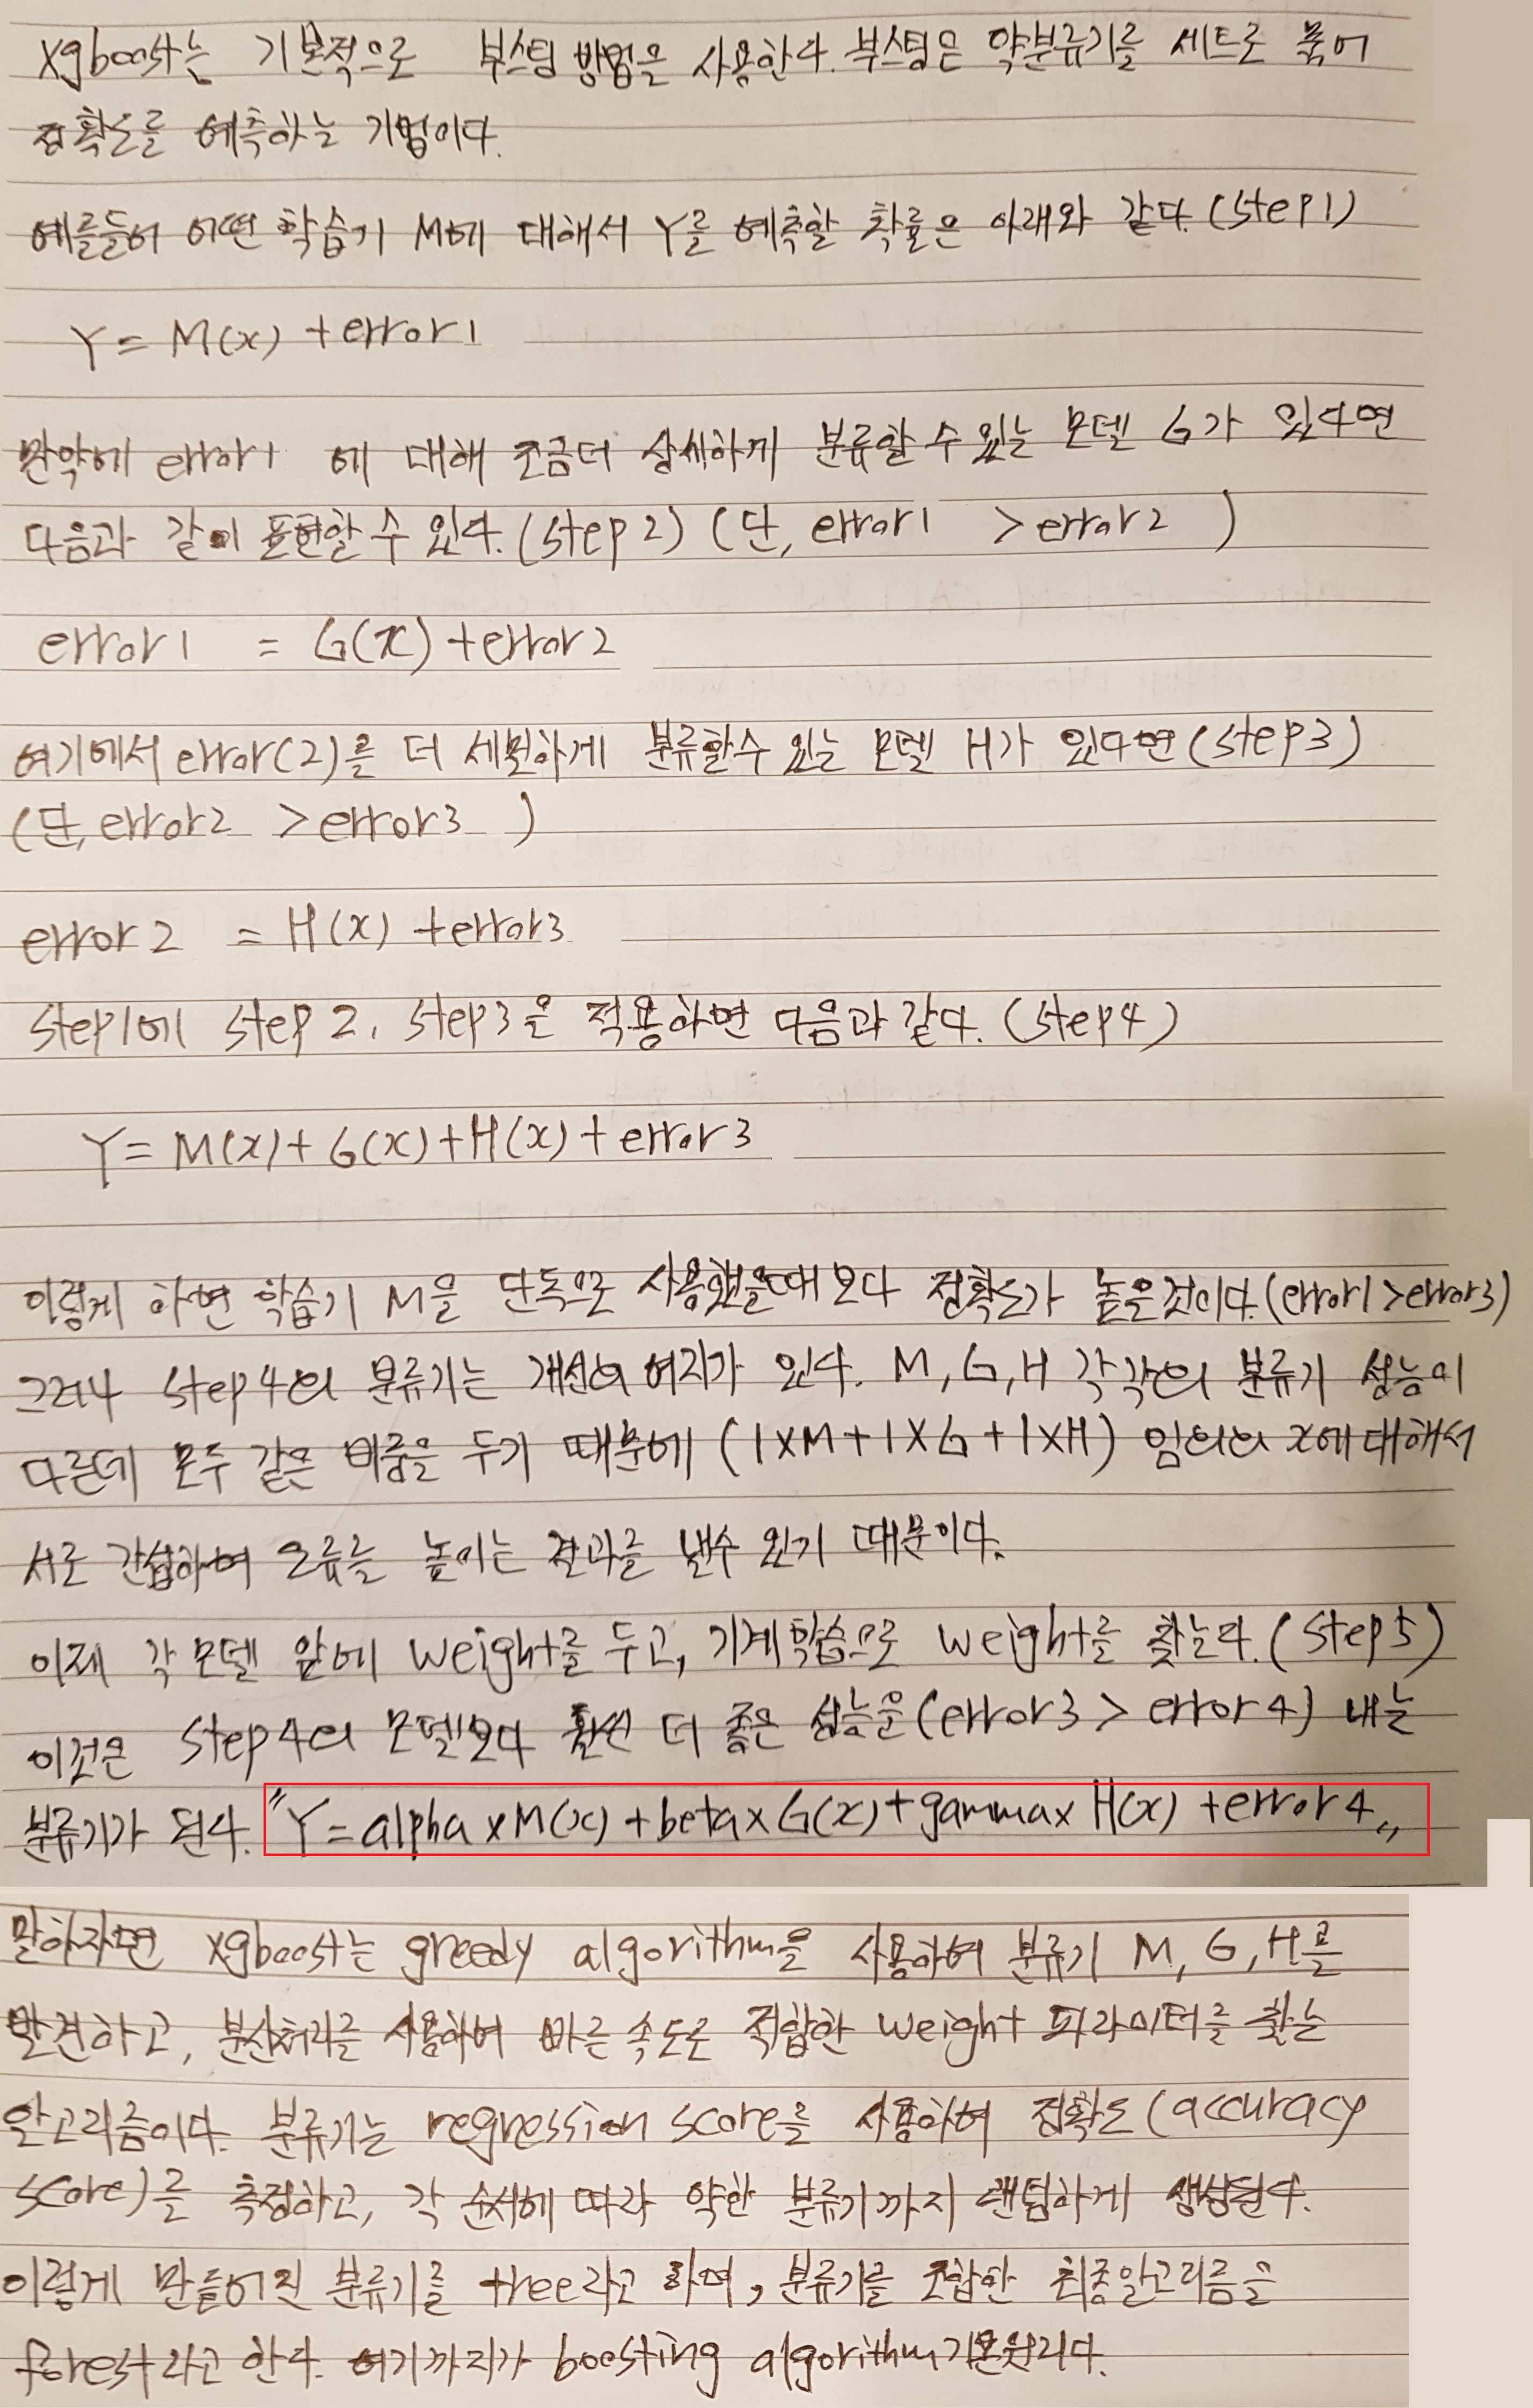 xgboost는 기본적으로 부스팅 방법을 사용한다. 부스팅은 약분류기를 세트로 묶어
정확도를 예측하는 기법이다.
예를들어 어떤 학습기 M에 대해서 Y를 예측할 확률은 아래와 같다. (step1)
Y = M(x) + error1
만약에 error1 에 대해 조금더 상세하게 분류할 수 있는 모델 G가 있다면
다음과 같이 표현할 수 있다. (step 2) (단, error1 > error2 )
error1 = G(x) + error2
여기에서 error(2)를 더 세밀하게 분류할수 있는 모델 H가 있다면 (step3)
(단, error2 > error3 )
error2 = H(x) + error3
step1에 step 2, step3을 적용하면 다음과 같다. (step4)
Y = M(x) + G(x) + H(x) + error3
이렇게 하면 학습기 M을 단독으로 사용했을때 보다 정확도가 높을것이다. (error1 > error3)
그러나 step4의 분류기는 개선의 여지가 있다. M, G, H 각각의 분류기 성능이
다른데 모두 같은 비중을 두기 때문에 (1×M + 1×G + 1×H) 임의의 x에 대해서
서로 간섭하여 오류를 높이는 결과를 낼수 있기 때문이다.
이제 각 모델 앞에 weight를 두고, 기계학습으로 weight를 찾는다. (step5)
이것은 step4의 모델보다 훨씬 더 좋은 성능을 (error3 > error4) 내는
분류기가 된다. "Y = alpha x M(x) + beta x G(x) + gamma x H(x) + error4"
말하자면 xgboost는 greedy algorithm을 사용하여 분류기 M, G, H를
발견하고, 분산처리를 사용하여 빠른 속도로 적합한 weight 파라미터를 찾는
알고리즘이다. 분류기는 regression score를 사용하여 정확도 (accuracy
score)를 측정하고, 각 순서에 따라 약한 분류기까지 랜덤하게 생성된다.
이렇게 만들어진 분류기를 tree라고 하며, 분류기를 조합한 최종알고리즘을
forest라고 한다. 여기까지가 boosting algorithm기본원리다.